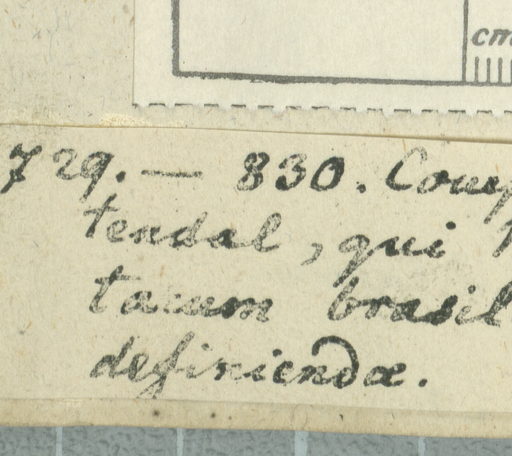 cm
729. — 830. Comp
tendal, qui
tarum brasil
definiendæ.